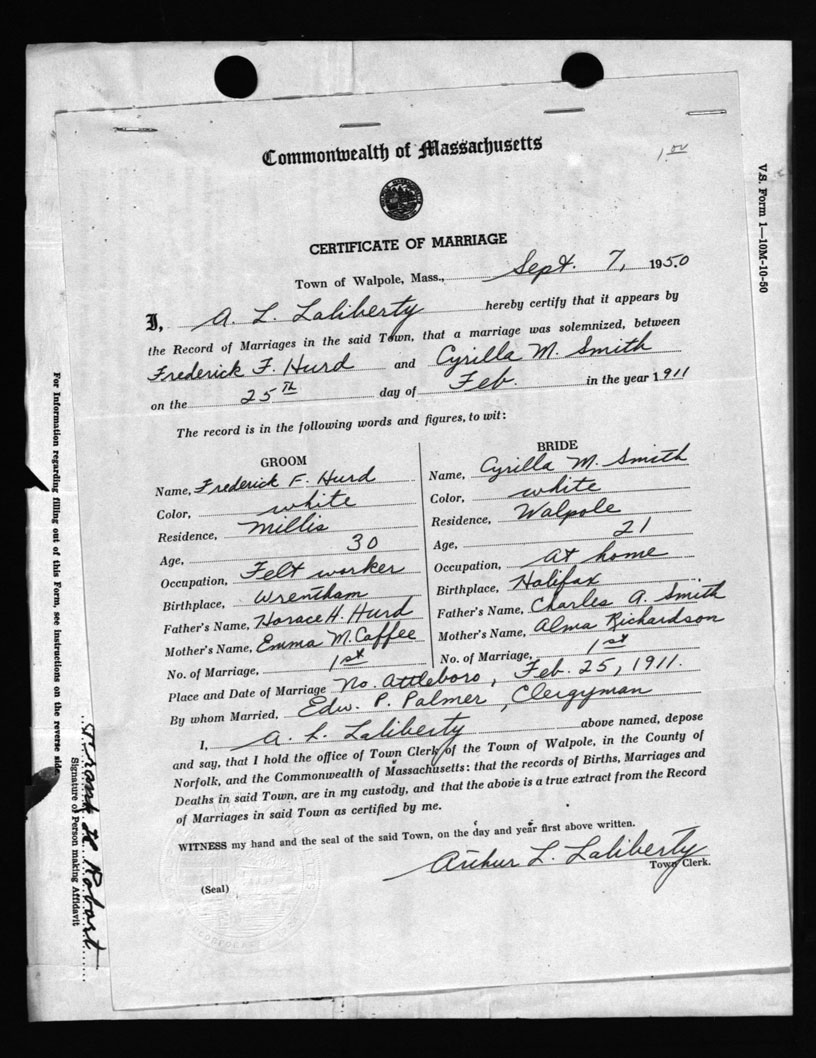 Commonwealth of Massachusetts
1.00
CERTIFICATE OF MARRIAGE
Town of Walpole, Mass., Sept. 7, 1950
I, A. L. Laliberty hereby certify that it appears by
the Record of Marriages in the said Town, that a marriage was solemnized, between
Frederick F. Hurd and Cyrilla M. Smith
on the 25TH day of Feb. in the year 1911
The record is in the following words and figures, to wit:
GROOM
Name, Frederick F. Hurd
Color, white
Residence, Millis
Age, 30
Occupation, Felt worker
Birthplace, Wrentham
Father's Name, Horace H. Hurd
Mother's Name, Emma M. Caffee
No. of Marriage, 1st
BRIDE
Name, Cyrilla M. Smith
Color, white
Residence, Walpole
Age, 21
Occupation, At home
Birthplace, Halifax
Father's Name, Charles A. Smith
Mother's Name, Alma Richardson
No. of Marriage, 1st
Place and Date of Marriage No. Attleboro, Feb. 25, 1911.
By whom Married, Edw. P. Palmer, Clergyman
I, A. L. Laliberty above named, depose
and say, that I hold the office of Town Clerk of the Town of Walpole, in the County of
Norfolk, and the Commonwealth of Massachusetts: that the records of Births, Marriages and
Deaths in said Town, are in my custody, and that the above is a true extract from the Record
of Marriages in said Town as certified by me.
WITNESS my hand and the seal of the said Town, on the day and year first above written.
Arthur L. Laliberty
Town Clerk.
(Seal)
V.S. Form 1—10M-10-50
For Information regarding filling out of this Form, see instructions on the reverse side
Frank H. Robart
Signature of Person making Affidavit